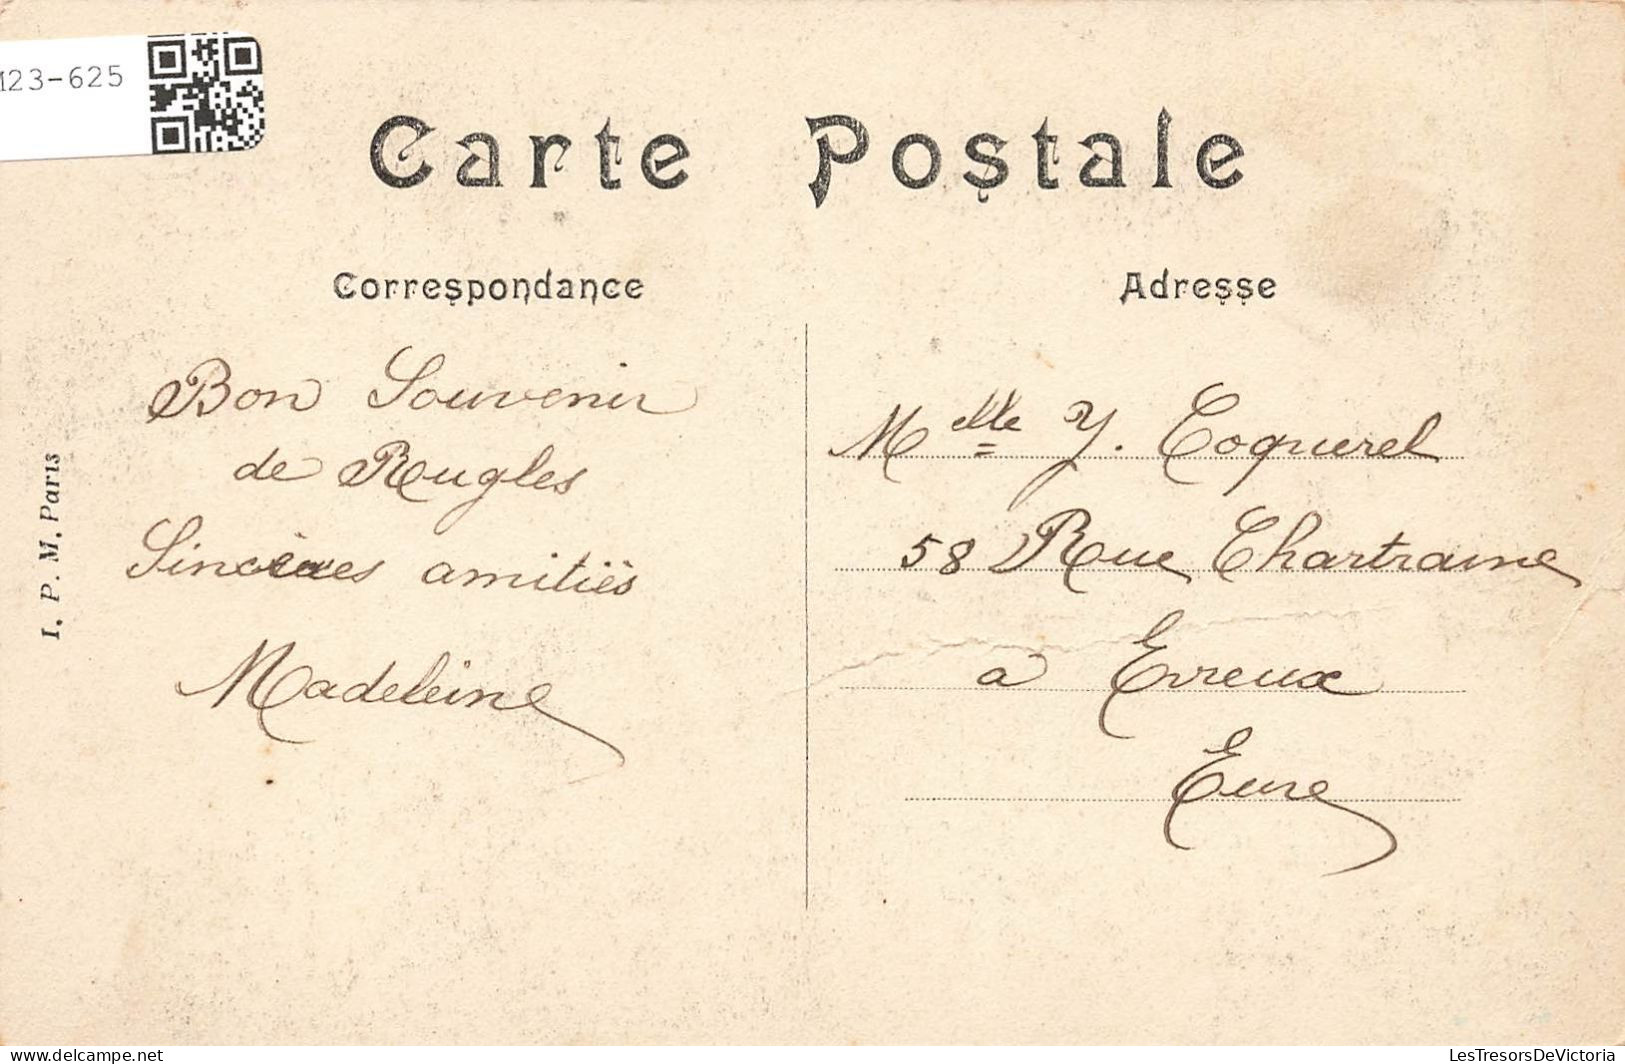 M23-625
Carte Postale
Correspondance
Adresse
Bon Souvenir
de Rugles
Sincères amitiés
Madeleine
Melle Y. Coquerel
58 Rue Chartraine
à Evreux
Eure
I. P. M. Paris
www.delcampe.net
LesTresorsDeVictoria